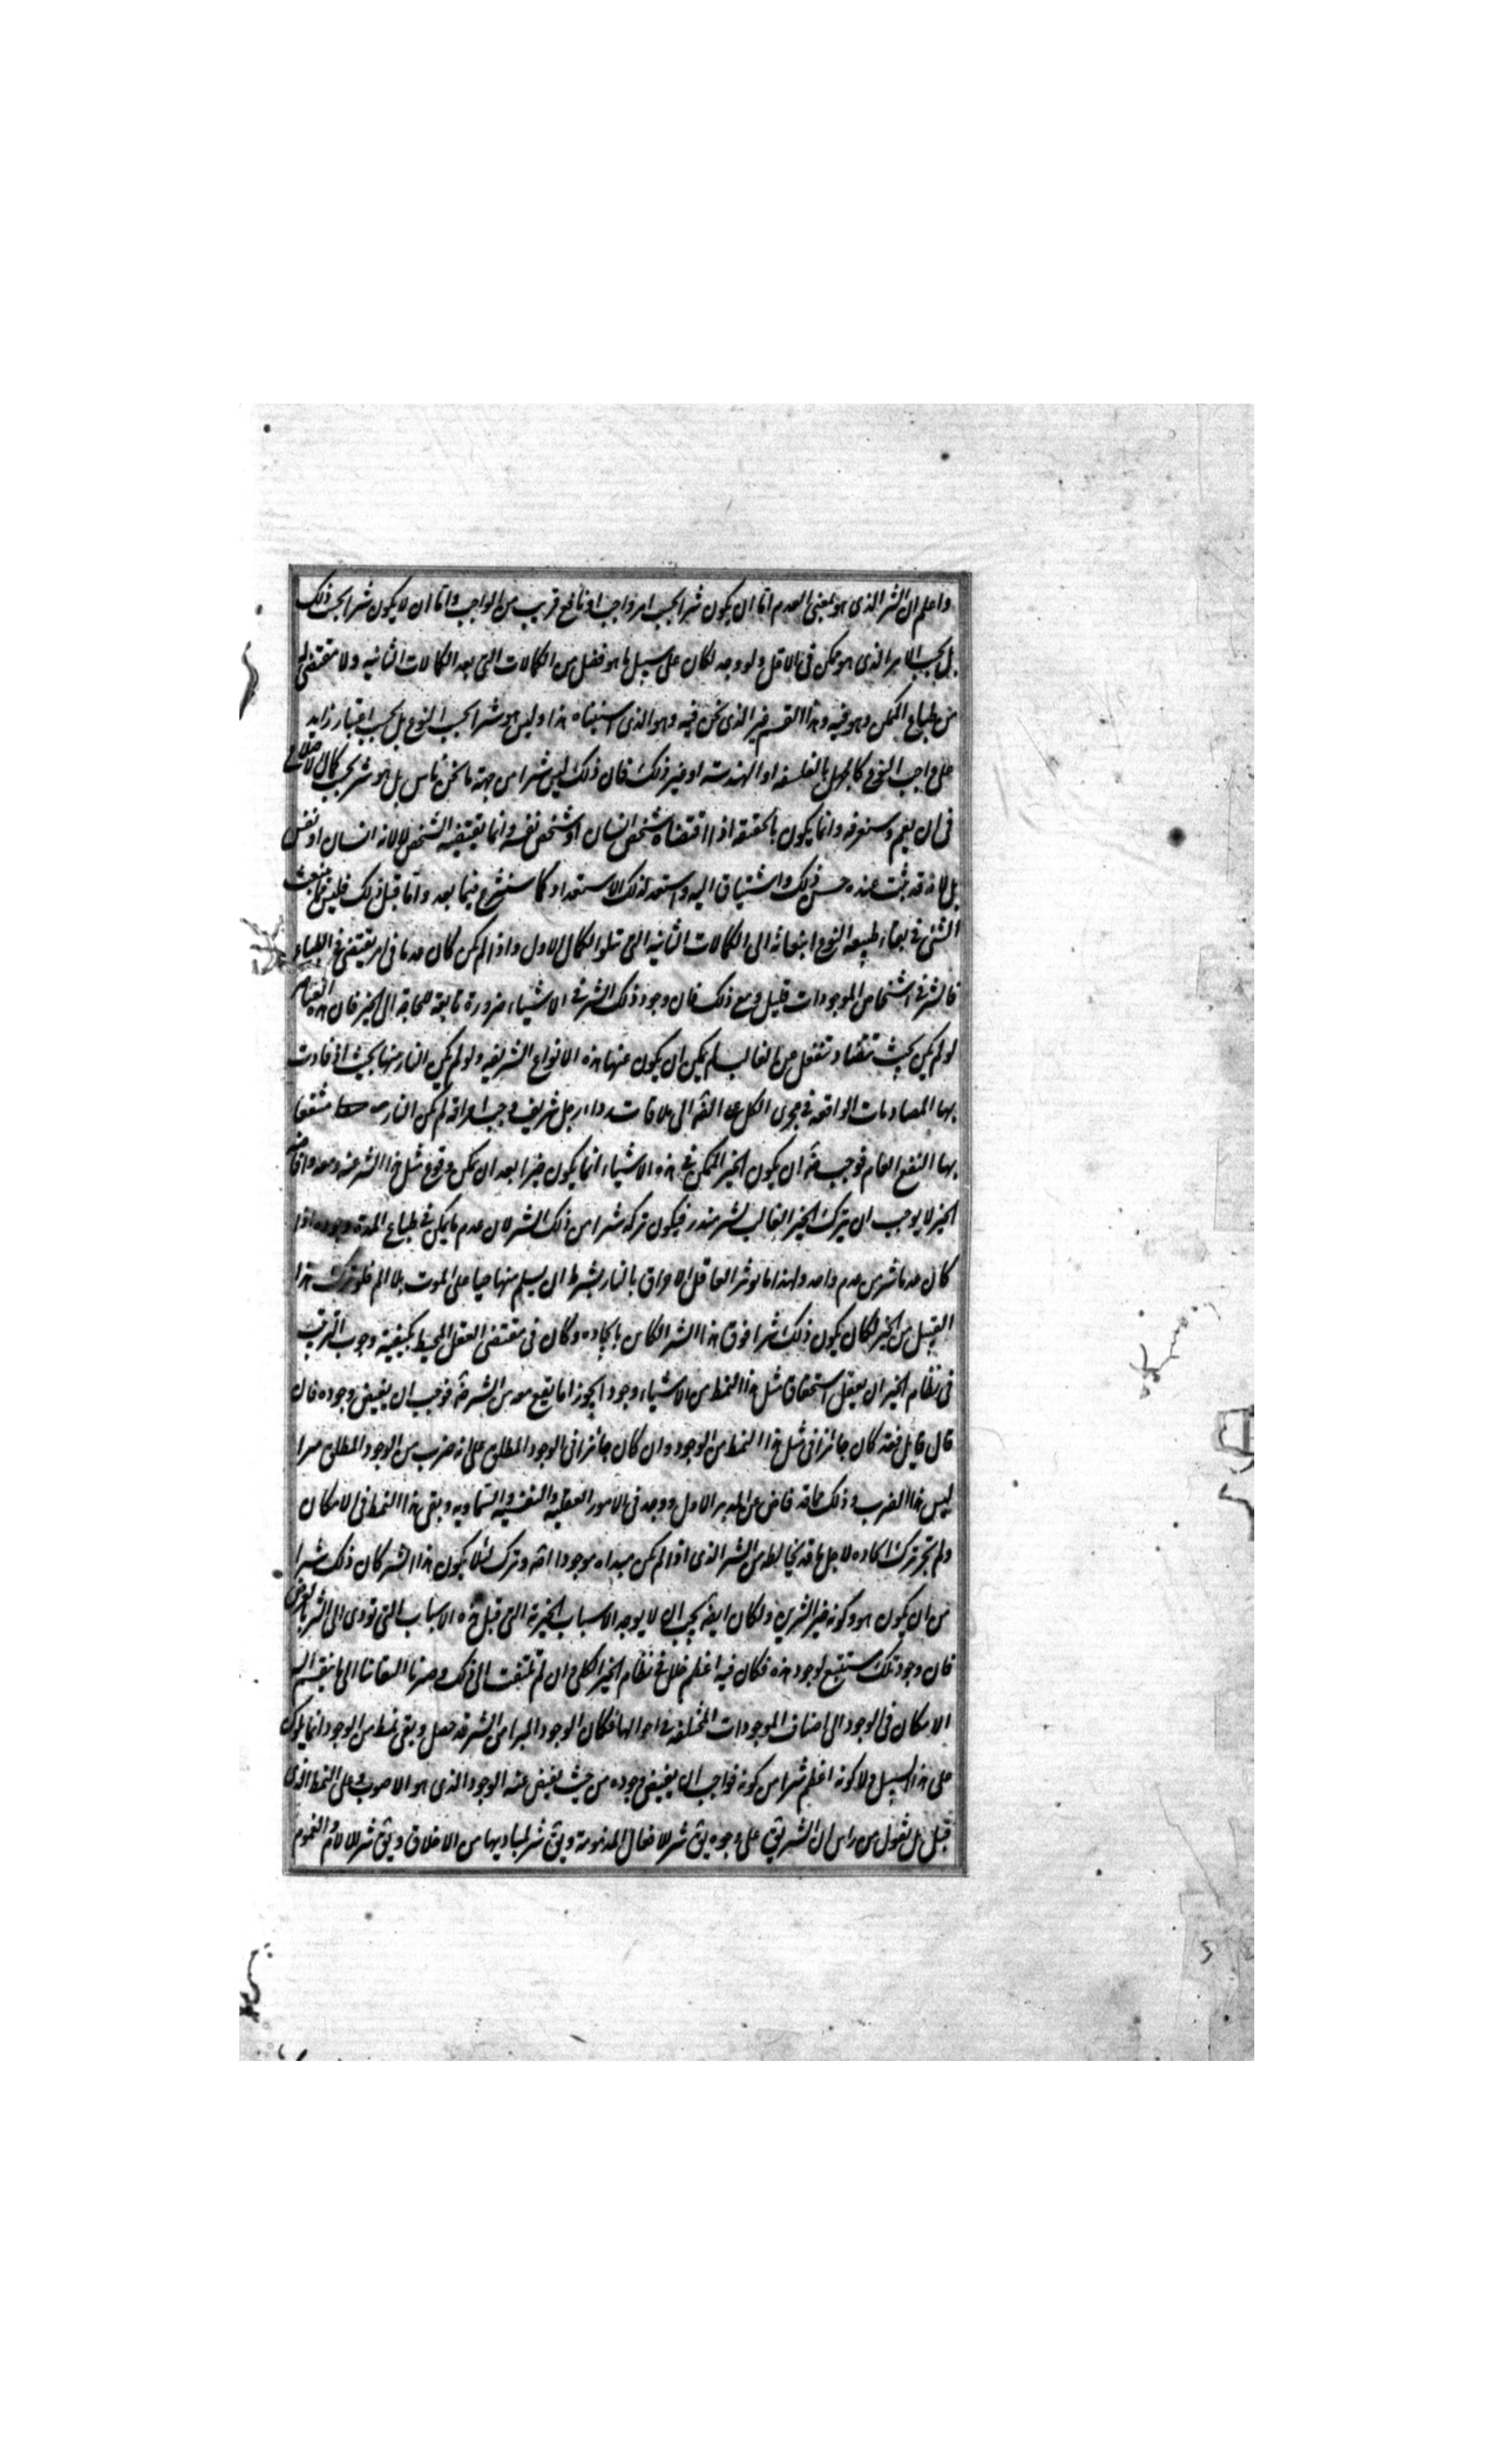 واعلم ان الشر الذی هو بمعنی العدم اما ان یکون شرا بحسب امر واجب او نافع قریب من الواجب واما ان لا یکون شرا بحسب ذلک
بل بحسب الامر الذی هو ممکن فی الاقل ولو وجد لکان علی سبیل ما هو فضل من الکمالات التی بعد الکمالات الثانیه ولا مقتضی له
من طباع الممکن وهو فیه وهذا القسم غیر الذی نحن فیه وهو الذی استثنیناه هذا ولیس هو شرا بحسب النوع بل بحسب اعتبار زاید
علی واجب النوع کالجهل بالفلسفه او الهندسه او غیر ذلک فان ذلک لیس شرا من جهة ما نحن ناس بل هو شر بحسب کمال الاصلاح
فی ان یعم وستعرفه وانما یکون بالحقیقه اذا اقتضاه شخص انسان او شخص نفسه وانما یقتضیه الشخص لا لانه انسان او نفس
بل لانه قد ثبت عنده حسن ذلک واشتیاق الیه واستعد لذلک الاستعداد کما سنشرح فیما بعد واما قبل ذلک فلیس مما ینبعث
الشئ فی بقاء طبیعه النوع انبعاثه الی الکمالات الثانیه التی تتلو الکمال الاول واذا لم یکن کان عدما فی امر یقتضی فی الطباع
فالشر فی اشخاص الموجودات قلیل ومع ذلک فان وجود ذلک الشر فی الاشیاء ضرورة تابعة للحاجة الی الخیر فان هذه العناصر
لو لم یکن بحیث تتضاد تنفعل من الغالب لم یکن ان یکون عنها هذه الانواع الشریفه ولو لم یکن النار منها بحیث اذا تادت
بها المصادمات الواقعه فی مجری الکل الی ملاقات رداء رجل شریف وجب احراقه لم یکن النار منتفعا
بها النفع العام فوجب ضرورة ان یکون الخیر الممکن فی هذه الاشیاء انما یکون خیرا بعد ان یمکن وقوع مثل هذا الشر عنه ومعه وافاضة
الخیر لا یوجب ان یترک الخیر الغالب لشر یندر فیکون ترکه شرا من ذلک الشر لان عدم ما یمکن فی طباع المدة وجوده اذا
کان عدما شر من عدم واحد ولهذا ما یوثر العاقل الاحراق بالنار بشرط ان یسلم منها حیا علی الموت بلا الم فلو ترک هذا
القبیل من الخیر لکان یکون ذلک شرا فوق هذا الشر الکاین بایجاده وکان فی مقتضی العقل المحیط بکیفیة وجوب الترتیب
فی نظام الخیر ان یعقل استحقاق مثل هذا النمط من الاشیاء وجودا مجوزا ما یقع معه من الشر ضرورة فوجب ان یفیض وجوده فان
قال قایل فقد کان جائزا فی مثل هذا النمط من الوجود وان کان جائزا فی الوجود المطلق علی انه ضرب من الوجود المطلق مبرا
لیس هذا الضرب وذلک مما قد فاض عن المدبر الاول ووجد فی الامور العقلیه والنفسیه والسماویه وبقی هذا النمط فی الامکان
ولم یجز ترک ایجاده لاجل ما قد یخالطه من الشر الذی اذا لم یکن مبداه موجودا اصلا وترک لئلا یکون هذا الشر کان ذلک شرا
من ان یکون هو وکونه خیر الشرین ولکان ایضا یجب ان لا یوجد الاسباب الخیریة التی قبل هذه الاسباب التی تودی الی الشر بالعرض
فان وجود تلک مستتبع لوجود هذه فکان فیه اعظم خلل فی نظام الخیر الکلی وان لم نلتفت الی ذلک وصرنا التفاتنا الی ما ینقسم الیه
الامکان فی الوجود الی اصناف الموجودات المختلفه فی احوالها فکان الوجود المبرا من الشر قد حصل وبقی نمط من الوجود انما یکون
علی هذا السبیل ولا کونه اعظم شرا من کونه فواجب ان یفیض وجوده من حیث یفیض عنه الوجود الذی هو الاصوب وعلی النمط الذی
قبل بل نقول من راس ان الشر یق علی وجوه یق شر للافعال المذمومة ویق شر لمبادیها من الاخلاق ویق شر للالام والغموم